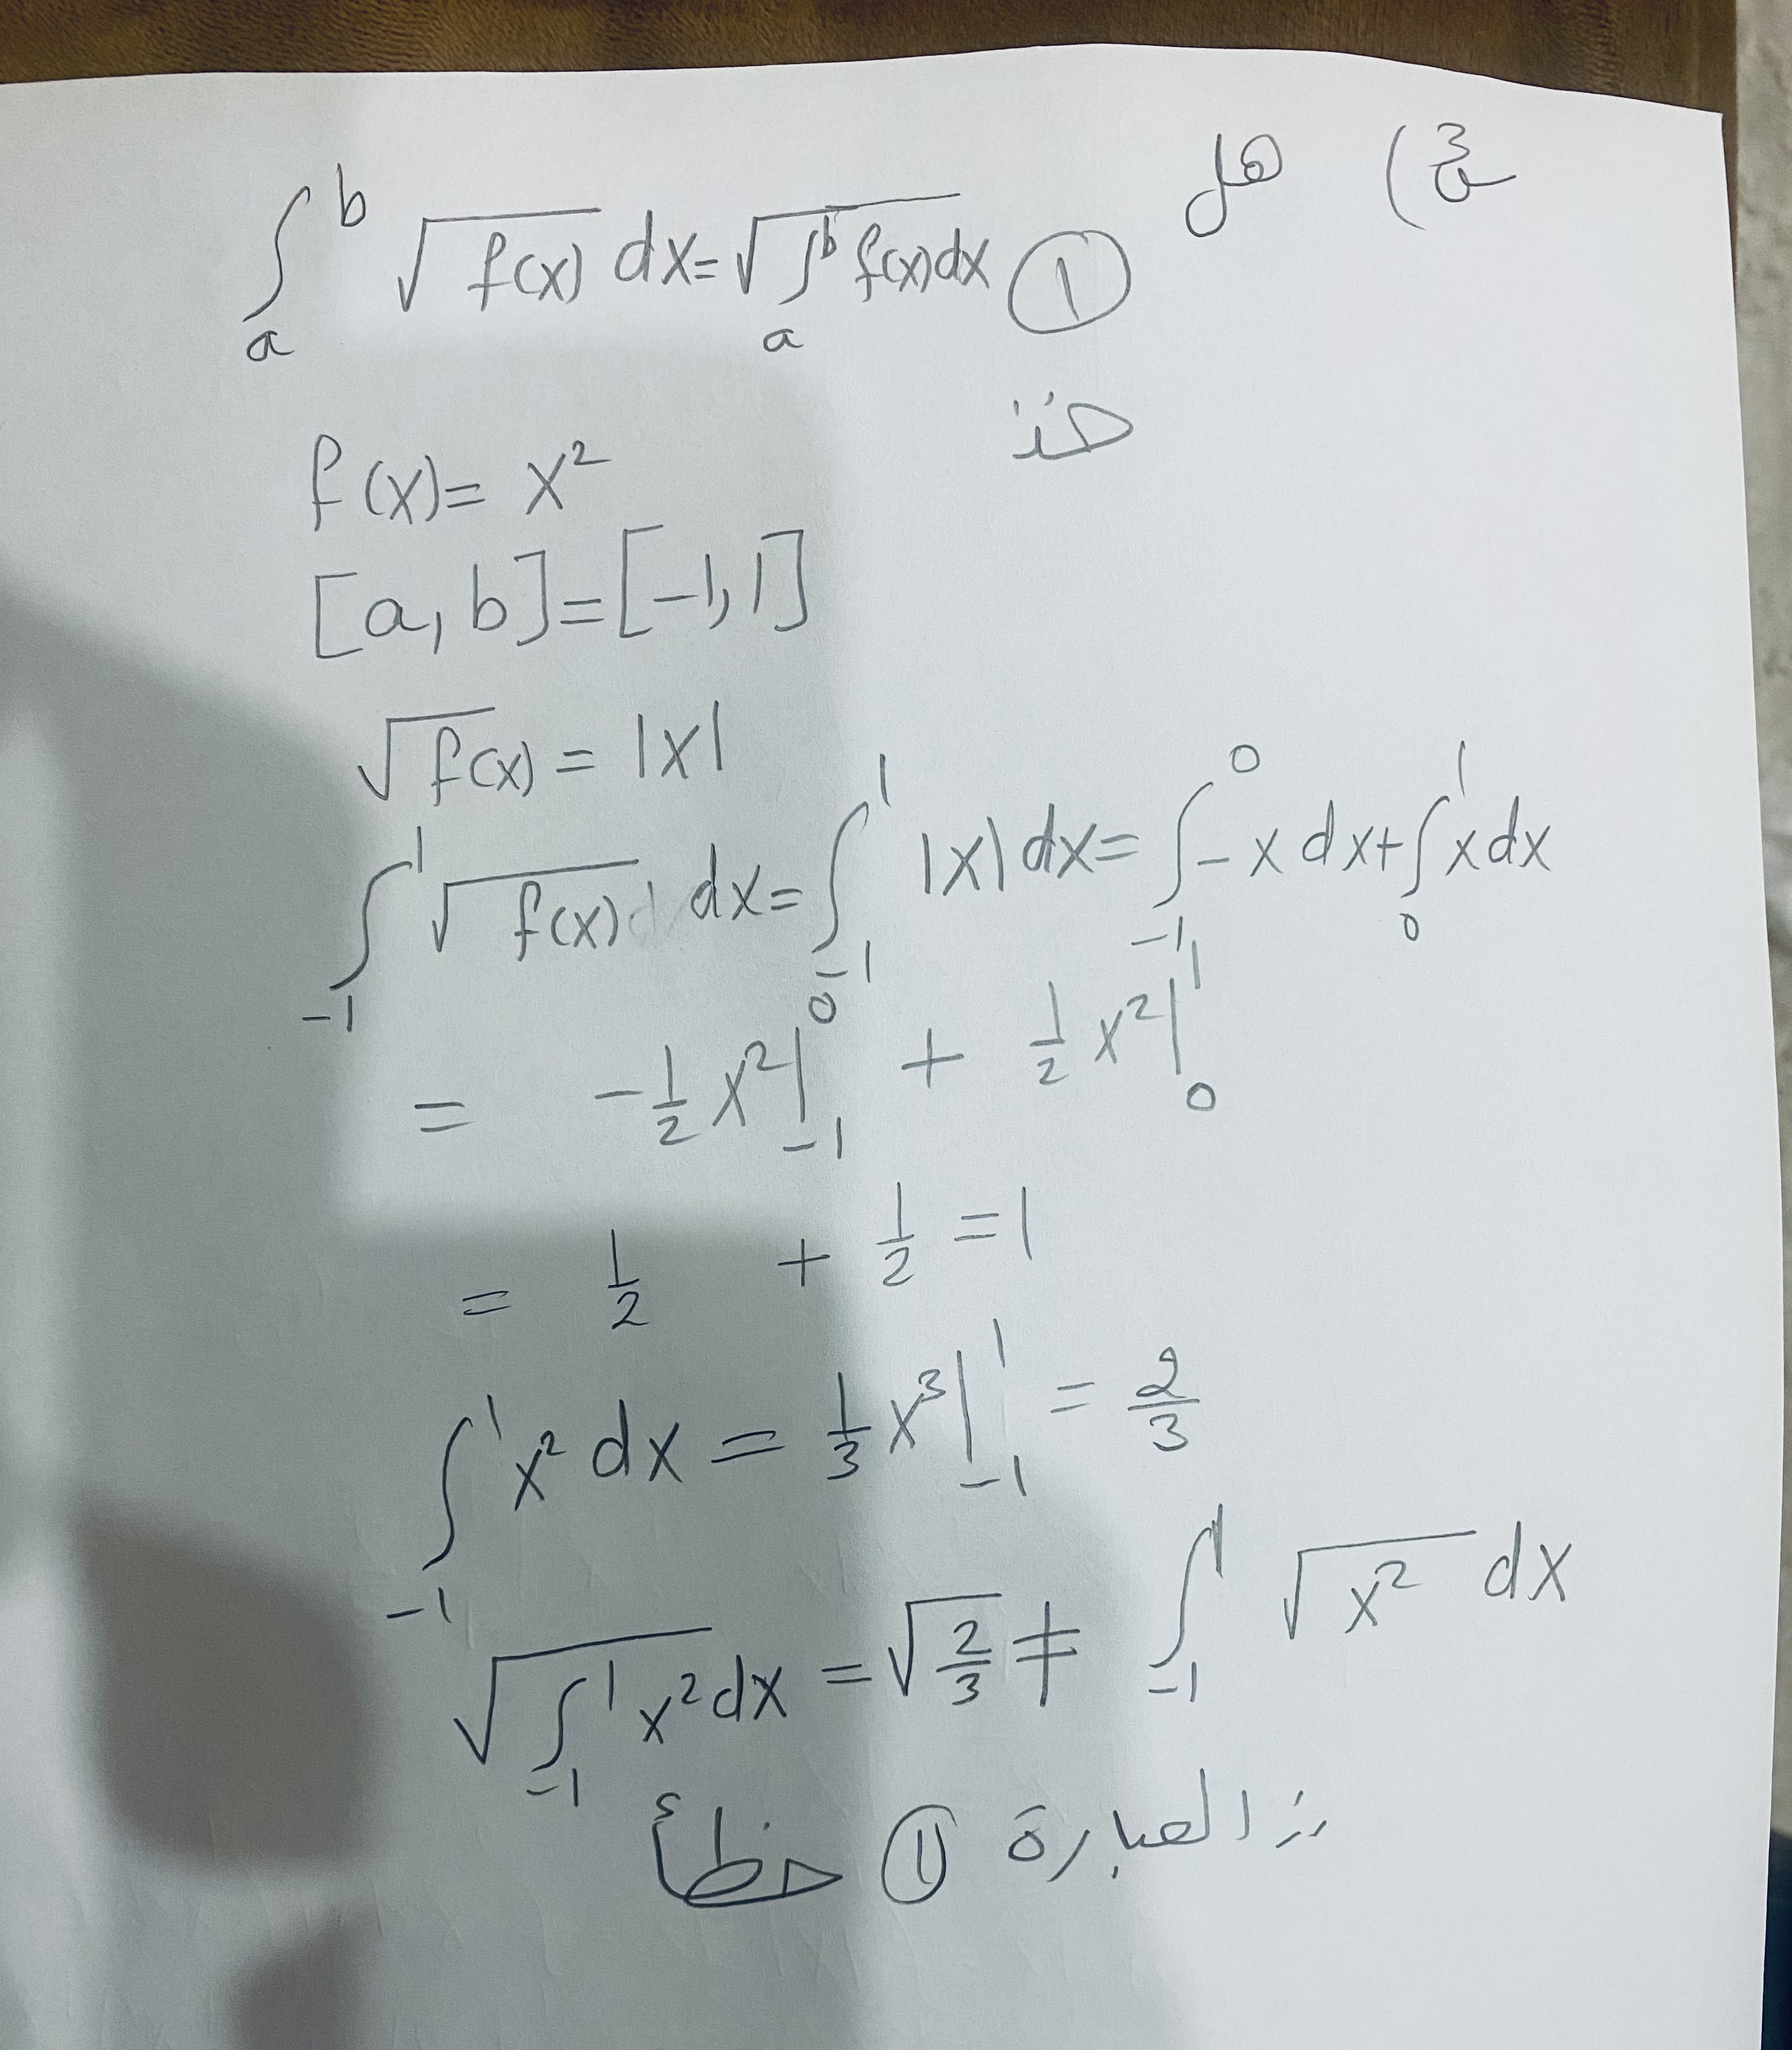 هل
∫_a^b √f(x) dx = √∫_a^b f(x)dx ①
خذ
f(x) = x²
[a, b] = [-1, 1]
√f(x) = |x|
∫_{-1}^1 √f(x) dx = ∫_{-1}^1 |x| dx = ∫_{-1}^0 -x dx + ∫_0^1 x dx
= -1/2 x² |_{-1}^0 + 1/2 x² |_0^1
= 1/2 + 1/2 = 1
∫_{-1}^1 x² dx = 1/3 x³ |_{-1}^1 = 2/3
√∫_{-1}^1 x² dx = √2/3 ≠ ∫_{-1}^1 √x² dx
∴ العبارة ① خطأ